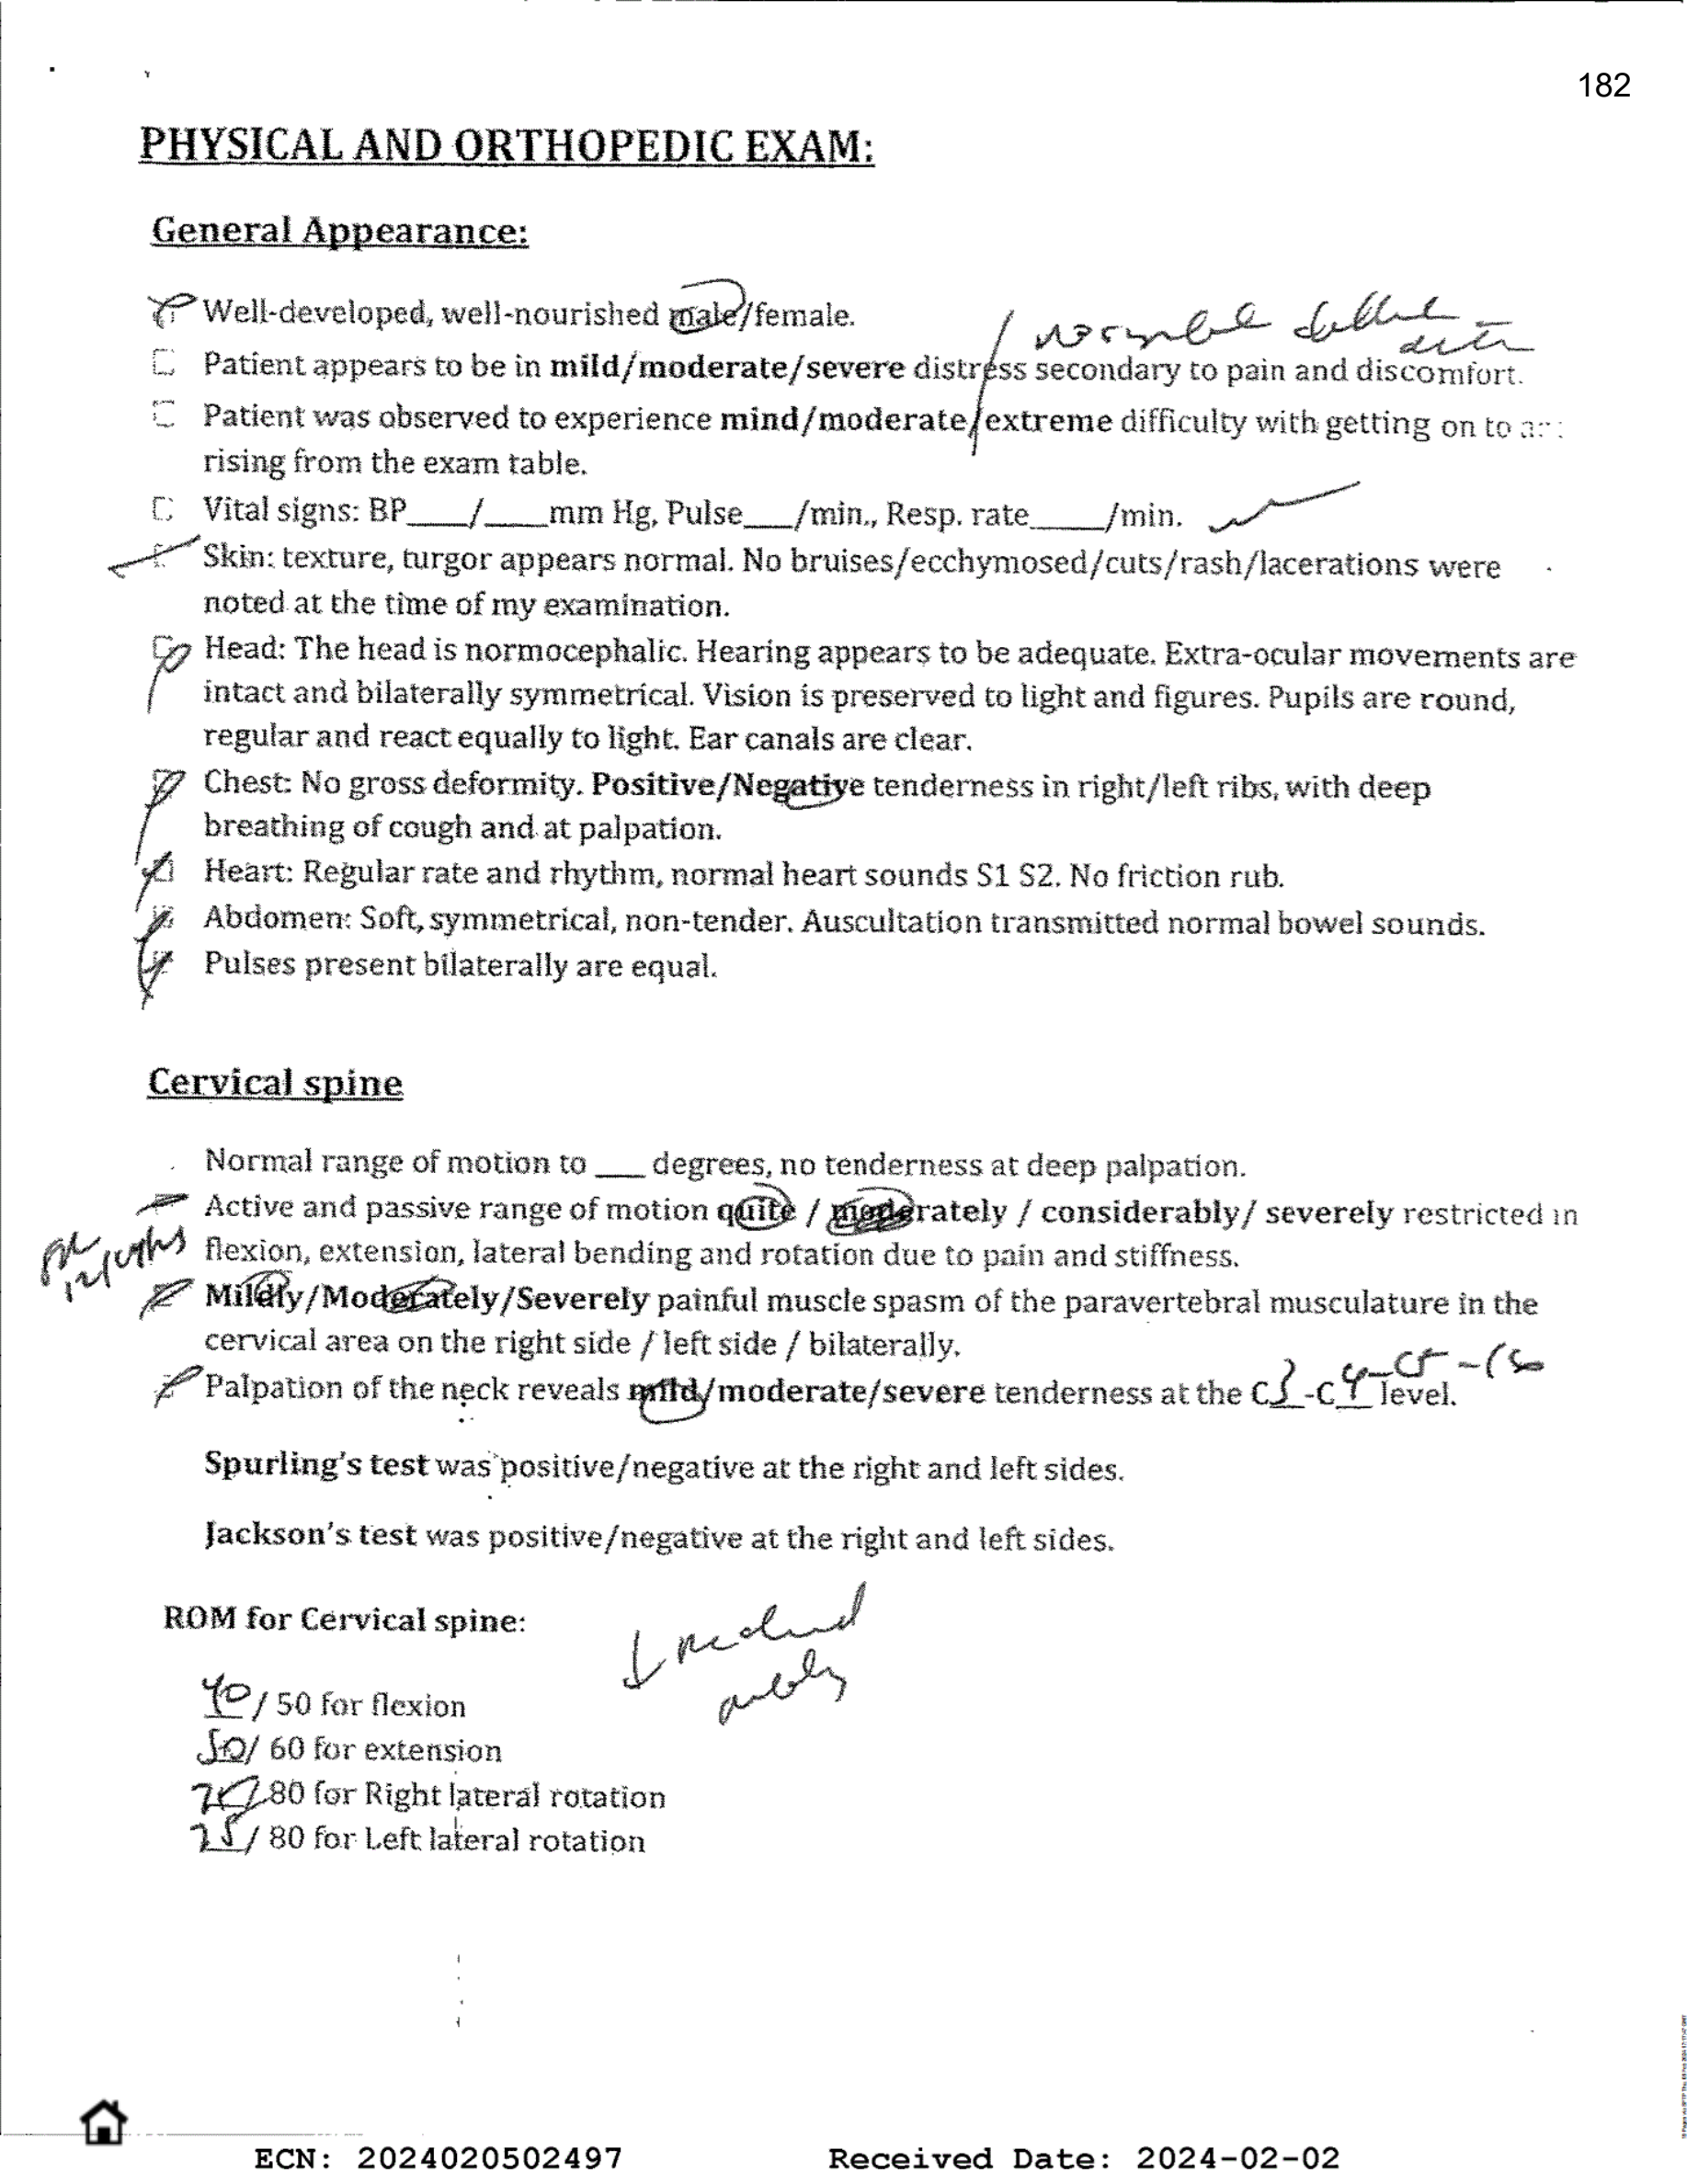 182
PHYSICAL AND ORTHOPEDIC EXAM:
General Appearance:
Well-developed, well-nourished male/female.
Patient appears to be in mild/moderate/severe distress secondary to pain and discomfort.
Patient was observed to experience mind/moderate/extreme difficulty with getting on to
rising from the exam table.
Vital signs: BP___/___mm Hg, Pulse___/min., Resp. rate____/min.
Skin: texture, turgor appears normal. No bruises/ecchymosed/cuts/rash/lacerations were
noted at the time of my examination.
Head: The head is normocephalic. Hearing appears to be adequate. Extra-ocular movements are
intact and bilaterally symmetrical. Vision is preserved to light and figures. Pupils are round,
regular and react equally to light. Ear canals are clear.
Chest: No gross deformity. Positive/Negative tenderness in right/left ribs, with deep
breathing of cough and at palpation.
Heart: Regular rate and rhythm, normal heart sounds S1 S2. No friction rub.
Abdomen: Soft, symmetrical, non-tender. Auscultation transmitted normal bowel sounds.
Pulses present bilaterally are equal.
Cervical spine
Normal range of motion to ___ degrees, no tenderness at deep palpation.
Active and passive range of motion quite / moderately / considerably/ severely restricted in
flexion, extension, lateral bending and rotation due to pain and stiffness.
Mildly/Moderately/Severely painful muscle spasm of the paravertebral musculature in the
cervical area on the right side / left side / bilaterally.
Palpation of the neck reveals mild/moderate/severe tenderness at the C3-C4 level.
Spurling's test was positive/negative at the right and left sides.
Jackson's test was positive/negative at the right and left sides.
ROM for Cervical spine:
40/ 50 for flexion
50/ 60 for extension
/80 for Right lateral rotation
75/ 80 for Left lateral rotation
ECN: 2024020502497 Received Date: 2024-02-02